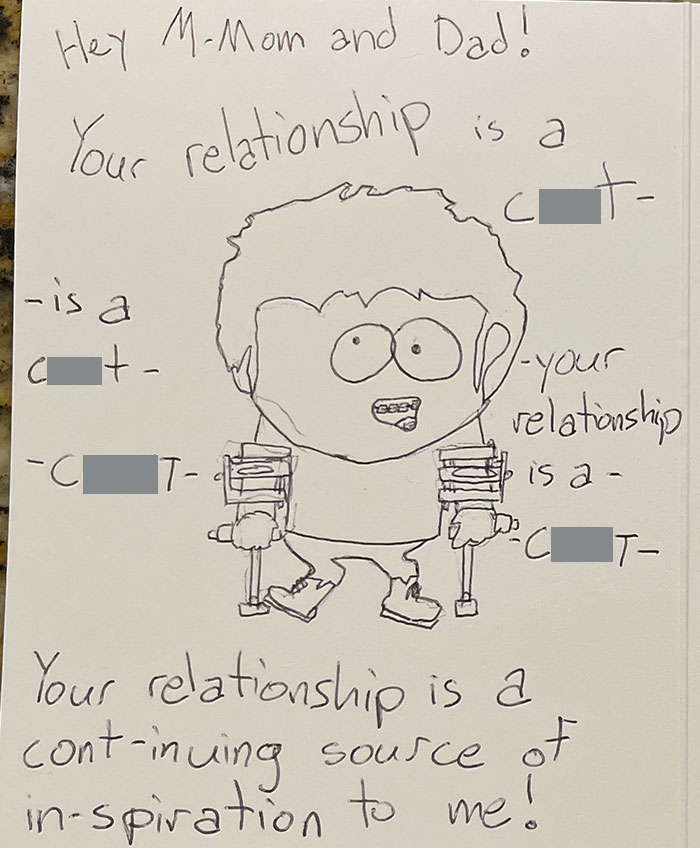 Hey M-Mom and Dad!
Your relationship is a
c t-
-is a
c t-
-C T-
-your
relationship
is a -
-C T-
Your relationship is a
cont-inuing source of
in-spiration to me!